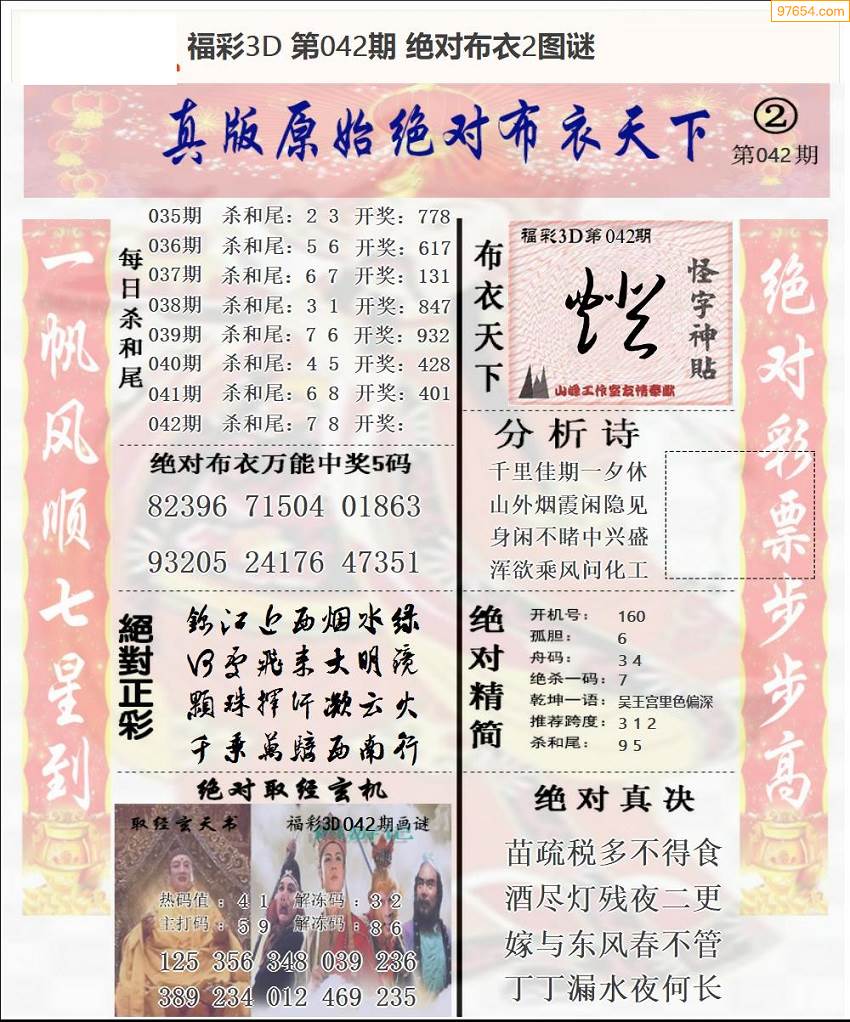 97654.com
福彩3D 第042期 绝对布衣2图谜
真版原始绝对布衣天下
②
第042期
一帆风顺七星到
每日杀和尾
035期 杀和尾：2 3 开奖：778
036期 杀和尾：5 6 开奖：617
037期 杀和尾：6 7 开奖：131
038期 杀和尾：3 1 开奖：847
039期 杀和尾：7 6 开奖：932
040期 杀和尾：4 5 开奖：428
041期 杀和尾：6 8 开奖：401
042期 杀和尾：7 8 开奖：
绝对布衣万能中奖5码
82396 71504 01863
93205 24176 47351
絕對正彩
錦江近西烟水绿
顆珠挥汗凝云火
千乘萬騎西南行
绝对取经玄机
取经玄天书
福彩3D042期画谜
热码值：4 1 解冻码：3 2
主打码：5 9 解冻码：8 6
125 356 348 039 236
389 234 012 469 235
布衣天下
福彩3D第042期
怪字神貼
山峰工作室友情奉献
分析诗
千里佳期一夕休
山外烟霞闲隐见
身闲不睹中兴盛
浑欲乘风问化工
绝对精简
开机号：160
孤胆：6
舟码：3 4
绝杀一码：7
乾坤一语：吴王宫里色偏深
推荐跨度：3 1 2
杀和尾：9 5
绝对真决
苗疏税多不得食
酒尽灯残夜二更
嫁与东风春不管
丁丁漏水夜何长
绝对彩票步步高